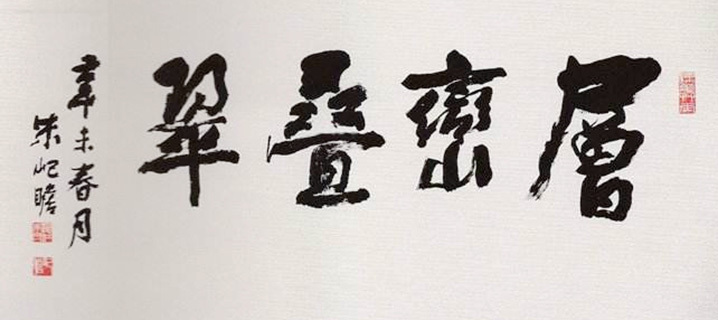 層巒叠翠
辛未春月
朱屺瞻